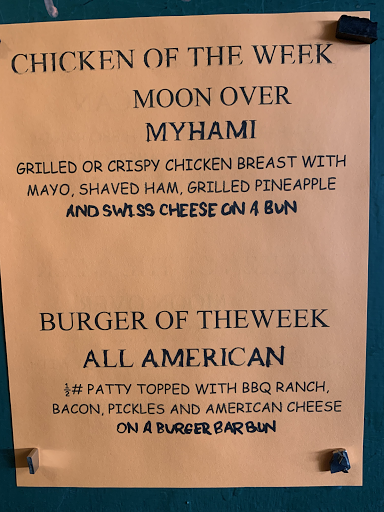 CHICKEN OF THE WEEK
MOON OVER
MYHAMI
GRILLED OR CRISPY CHICKEN BREAST WITH
MAYO, SHAVED HAM, GRILLED PINEAPPLE
AND SWISS CHEESE ON A BUN
BURGER OF THEWEEK
ALL AMERICAN
½# PATTY TOPPED WITH BBQ RANCH,
BACON, PICKLES AND AMERICAN CHEESE
ON A BURGER BAR BUN